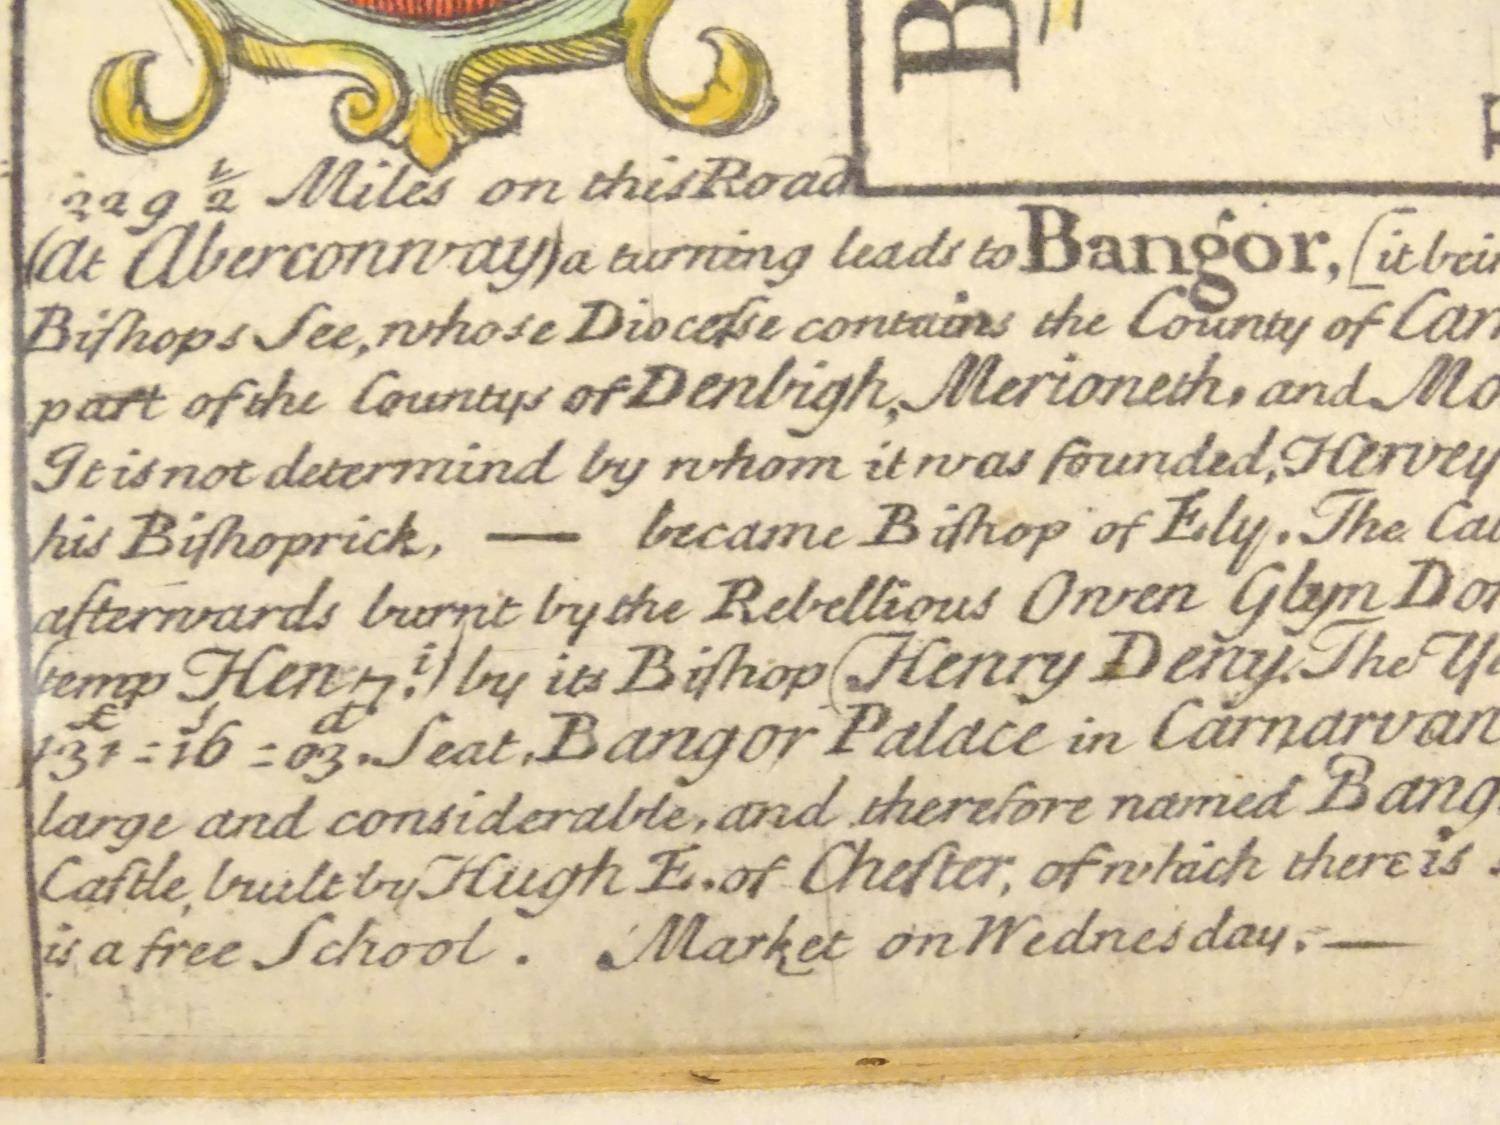 B
229 1/2 Miles on this Road
(at Aberconnway) a turning leads to Bangor, (it bein
Biſhops See, whose Dioceſse contains the County of Carn
part of the Countys of Denbigh, Merioneth, and Mo
It is not determind by whom it was founded, Hervey
his Biſhoprick, — became Biſhop of Ely. The Cat
afterwards burnt by the Rebellious Owen Glyn Dor
(temp Hen 7.i) by its Biſhop (Henry Deny. The Ye
£ s d
131 = 16 = 03. Seat, Bangor Palace in Carnarvan
large and considerable, and therefore named Bang
Caſtle, built by Hugh E. of Cheſter, of which there is
is a free School. Market on Wednesday. —